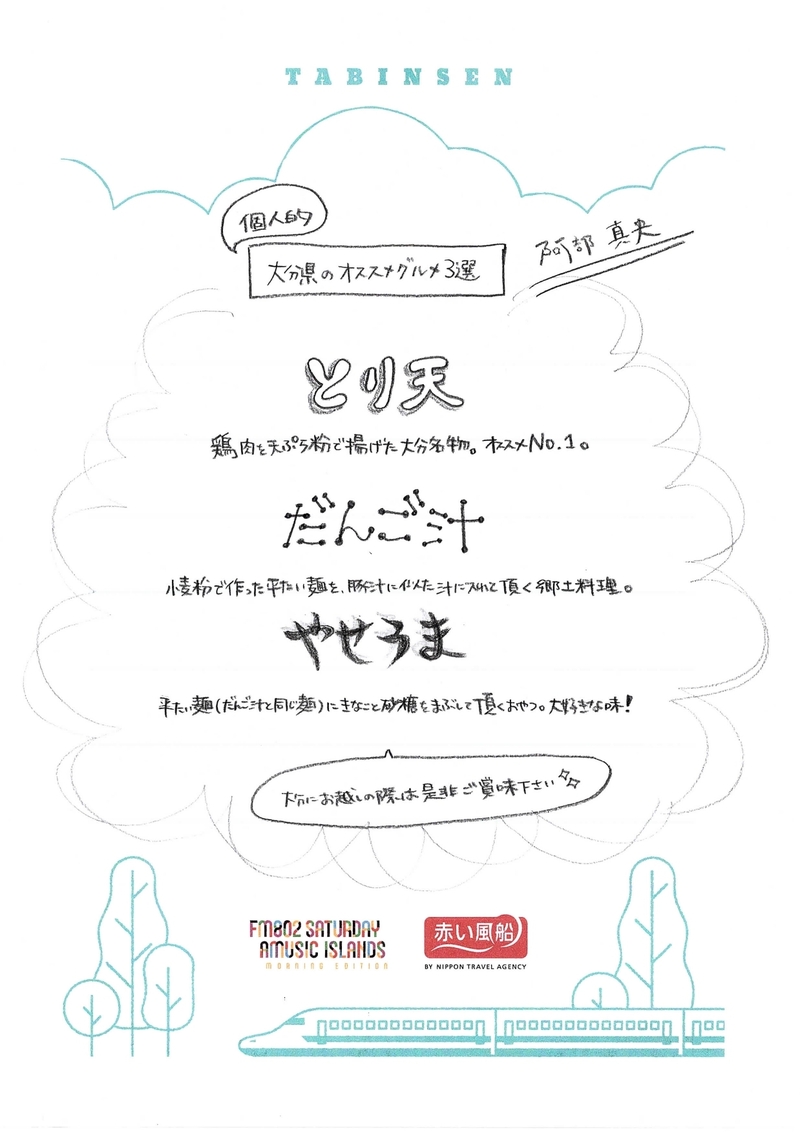 TABINSEN
個人的
大分県のオススメグルメ3選
阿部 真央
とり天
鶏肉を天ぷら粉で揚げた大分名物。オススメNo.1。
だんご汁
小麦粉で作った平たい麺を、豚汁に似た汁に入れて頂く郷土料理。
やせうま
平たい麺(だんご汁と同じ麺)にきなこと砂糖をまぶして頂くおやつ。大好きな味!
大分にお越しの際は是非ご賞味下さい
FM802 SATURDAY
AMUSIC ISLANDS
MORNING EDITION
赤い風船
BY NIPPON TRAVEL AGENCY